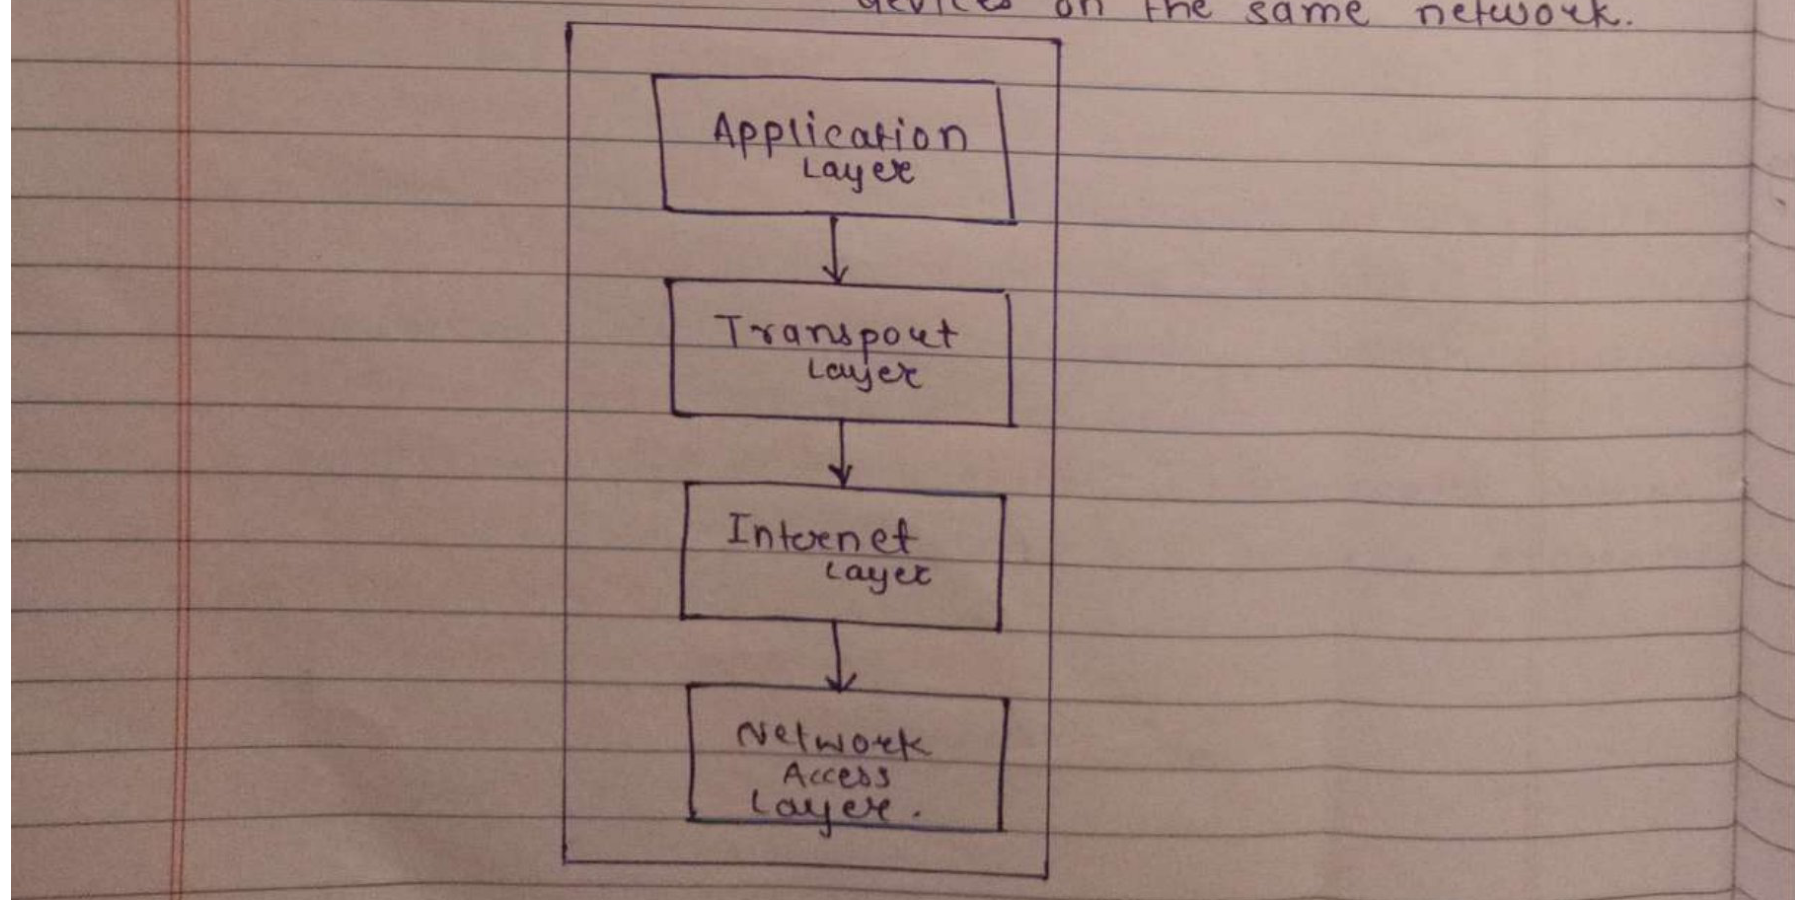 devices on the same network.
Application
Layer
Transport
Layer
Internet
Layer
Network
Access
Layer.